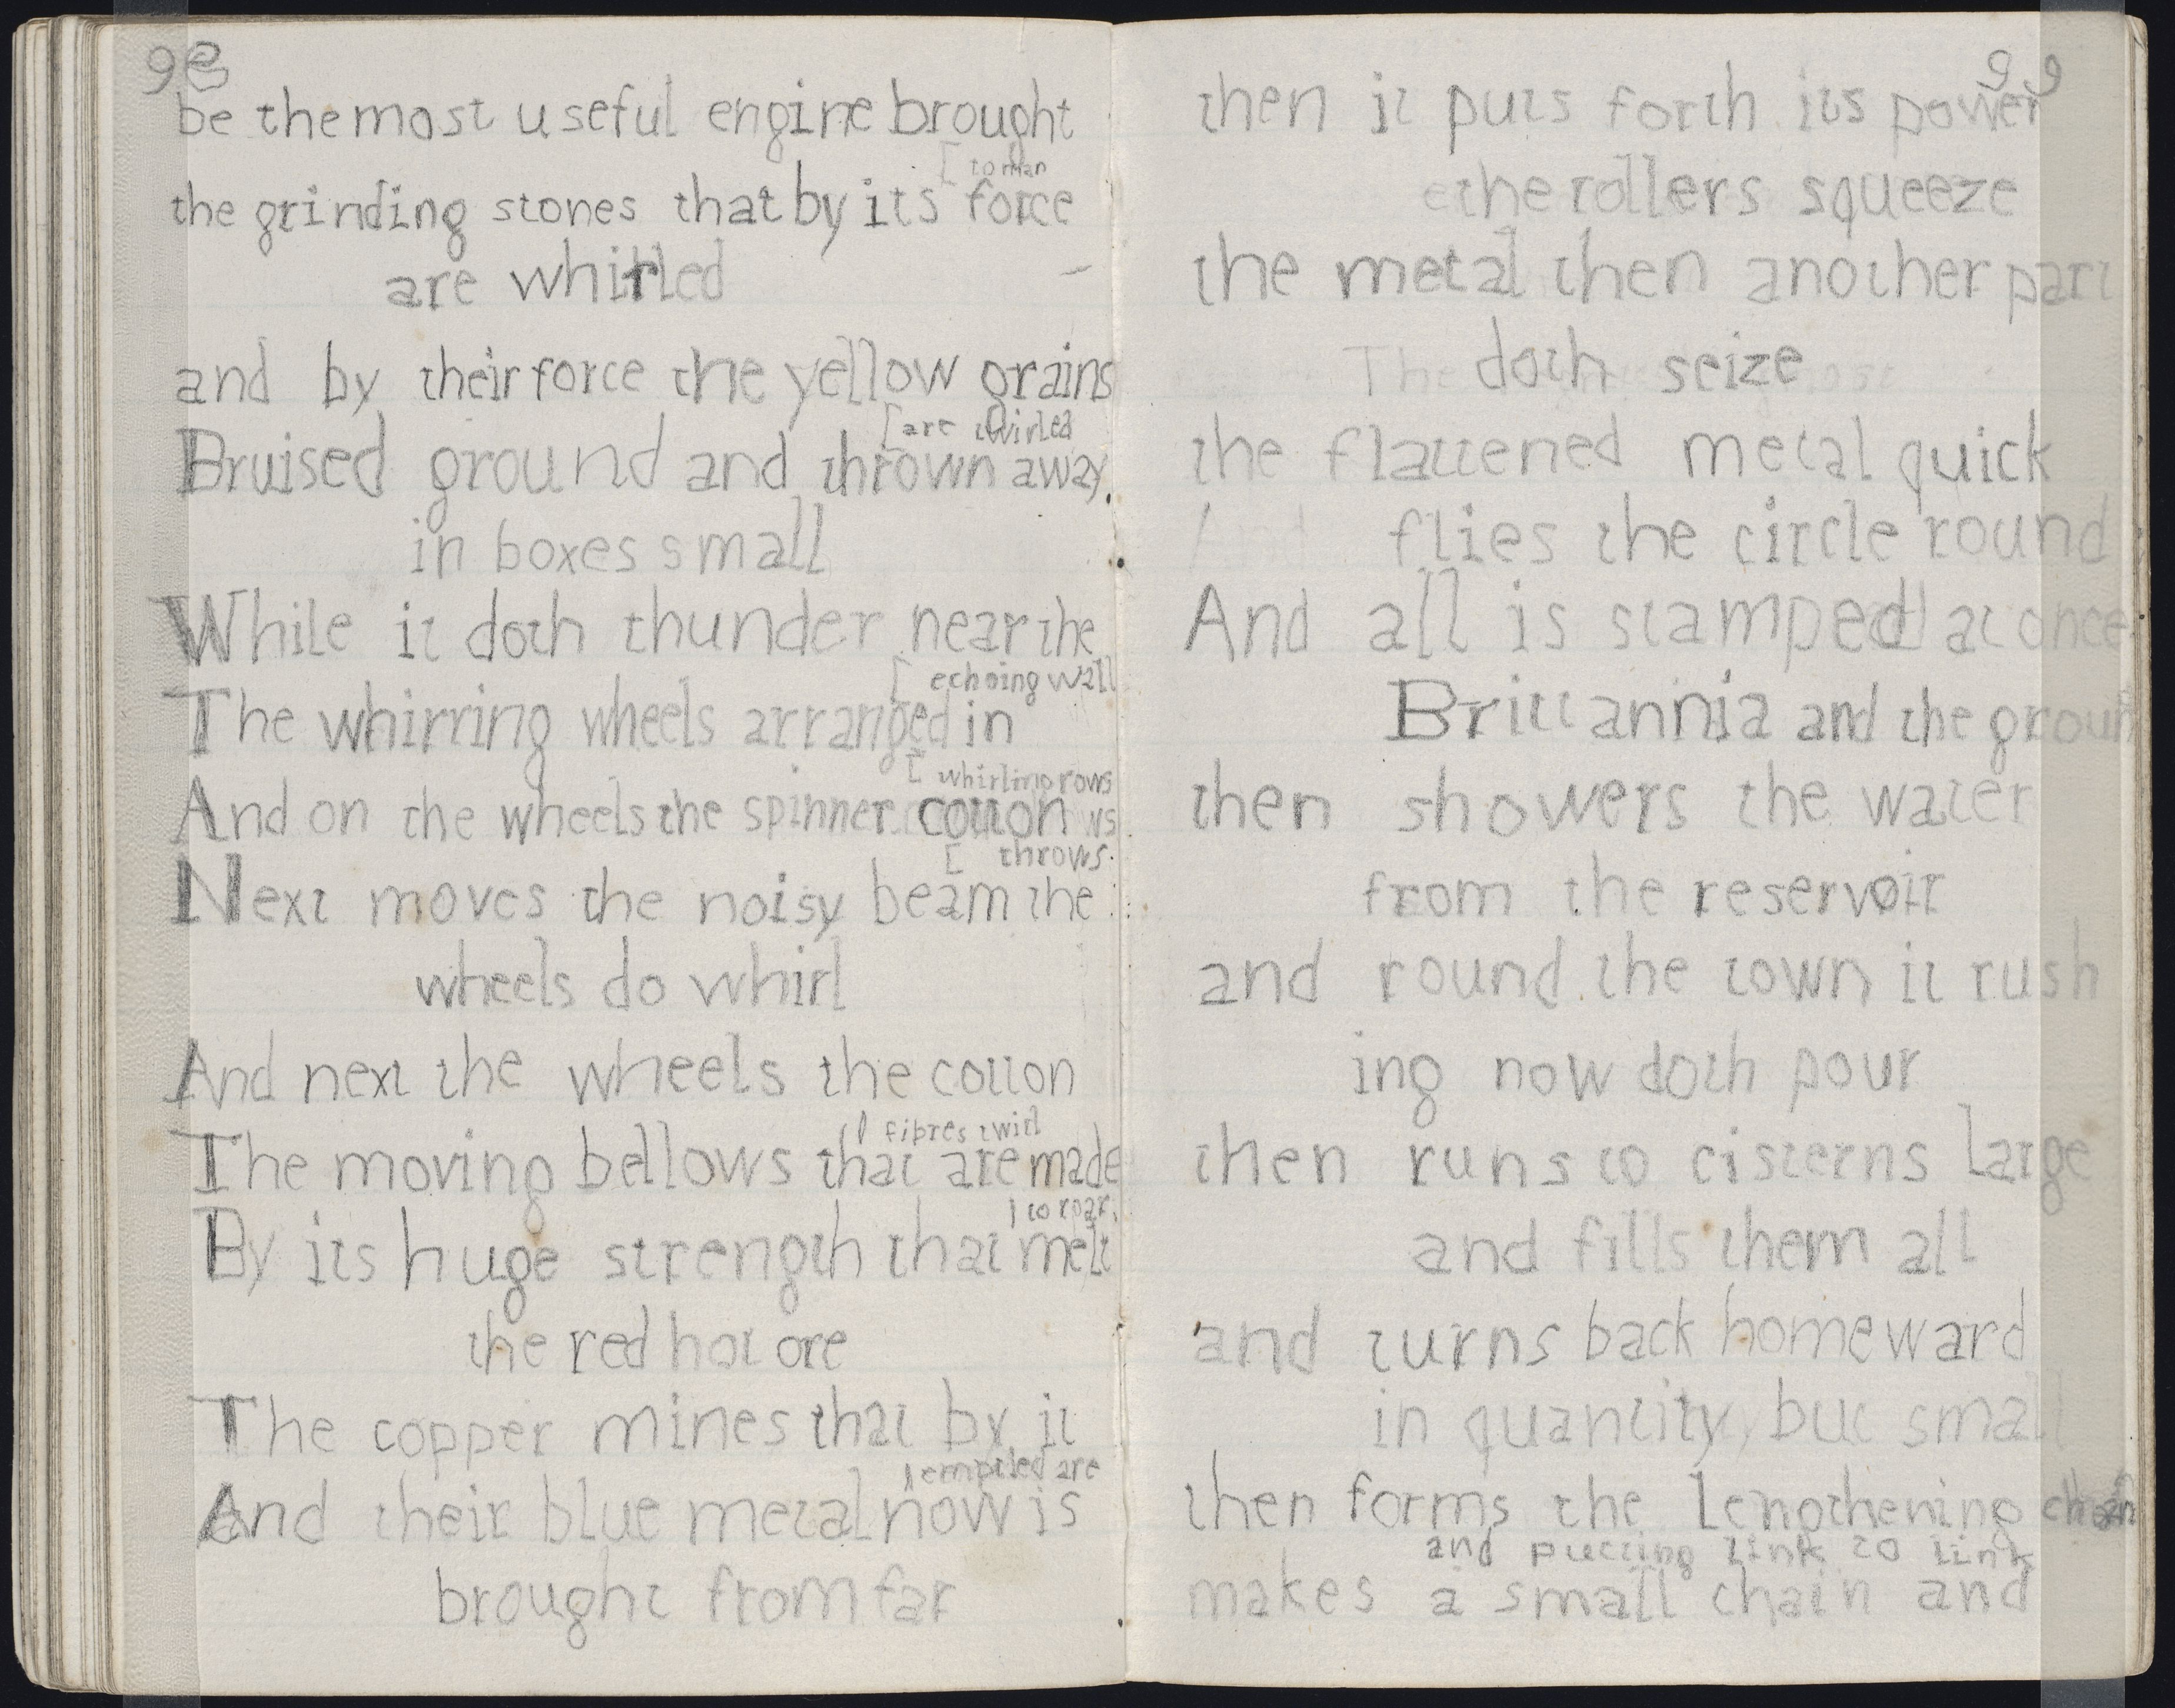 98
be the most useful engine brought
[to man
the grinding stones that by its force
are whirled
and by their force the yellow grains
[are twirled
Bruised ground and thrown away
in boxes small
While it doth thunder near the
[echoing wall
The whirring wheels arranged in
[whirling rows
And on the wheels the spinner cotton
[throws.
Next moves the noisy beam the
wheels do whirl
And next the wheels the cotton
[fibres twirl
The moving bellows that are made
[to roar,
By its huge strength that melt
the red hot ore
The copper mines that by it
[emptied are
And their blue metal now is
brought from far
99
then it puts forth its power
the rollers squeeze
the metal then another part
doth seize
the flattened metal quick
flies the circle round
And all is stamped at once
Brittannia and the groun
then showers the water
from the reservoir
and round the town it rush
ing now doth pour
then runs to cisterns large
and fills them all
and turns back homeward
in quantity but small
then forms the lengthening chain
and putting link to link
makes a small chain and